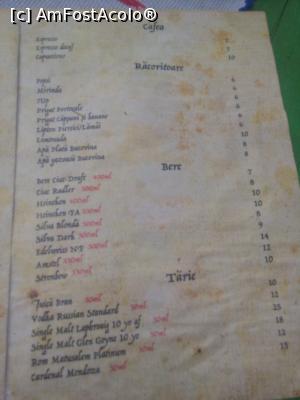 [c] AmFostAcolo®
Cafea
Espresso 7
Espresso decaf 7
Capuccino 10
Răcoritoare
Pepsi 6
Mirinda 6
7Up 6
Prigat Portocale
Prigat Căpșuni și banane
Lipton Piersici/Lămâi
Limonada
Apă Plată Bucovina
Apă gazoasă Bucovina
Bere
Bere Ciuc Draft 400ml 7
Ciuc Radler 500ml 8
Heineken 400ml 10
Heineken FA 330ml 10
Silva Blondă 500ml 8
Silva Dark 500ml 9
Edelweiss 500ml 14
Amstel 330ml 12
Strongbow 330ml 10
Tărie
50ml
Vodka Russian Standard 50ml
Single Malt Laphroaig 10 yo 50ml
Single Malt Glen Goyne 10 yo 50ml
Rom Matusalem Platinum 50ml
Cardenal Mendoza 50ml